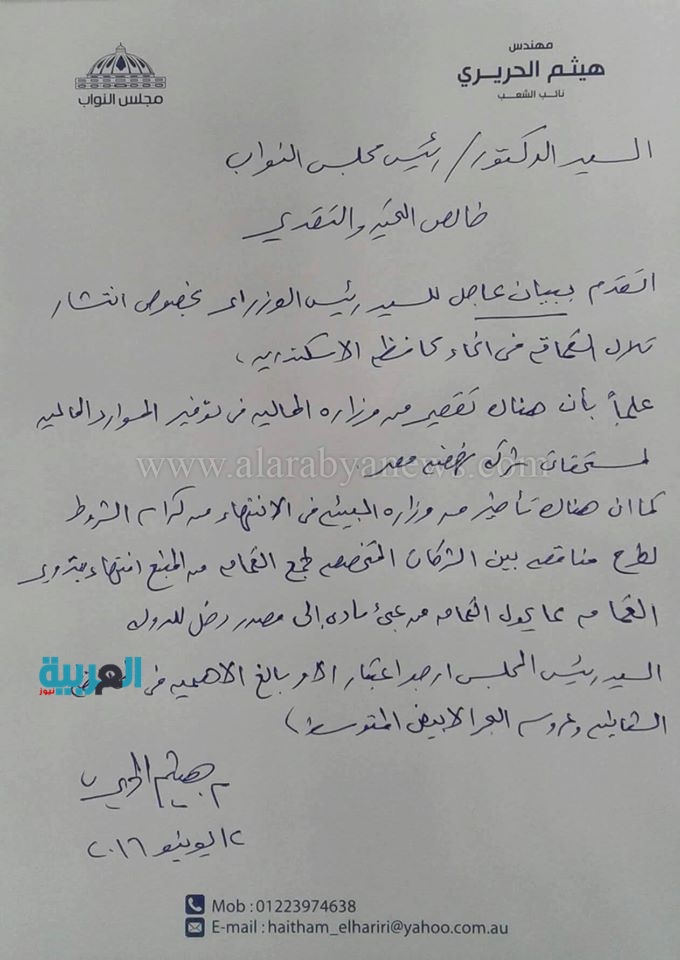 مهندس
هيثم الحريري
نائب الشعب
مجلس النواب
السيد الدكتور / رئيس مجلس النواب
خالص التحية والتقدير
اتقدم ببيان عاجل للسيد رئيس الوزراء بخصوص انتشار
تلال القمامة فى انحاء محافظه الاسكندريه ،
علماً بأن هناك تقصير من وزاره الماليه فى توفير الموارد الماليه
لمستحقات شركه نهضه مصر .
www.alarabyanews.com
كما ان هناك تأخير من وزاره البيئه فى الانتهاء من كراسه الشروط
لطرح مناقصه بين الشركات المتخصصه لجمع القمامه من المنبع انتهاء بتدوير
القمامه مما يحول القمامه من عبئ مادى إلى مصدر دخل للدوله
السيد رئيس المجلس ارجو اعتبار الأمر بالغ الاهميه فى
العربية
نيوز
الشاطئيه وعروسه البحر الابيض المتوسط )
م. هيثم الحريرى
١٢ يونيو ٢٠١٦
Mob : 01223974638
E-mail : haitham_elhariri@yahoo.com.au